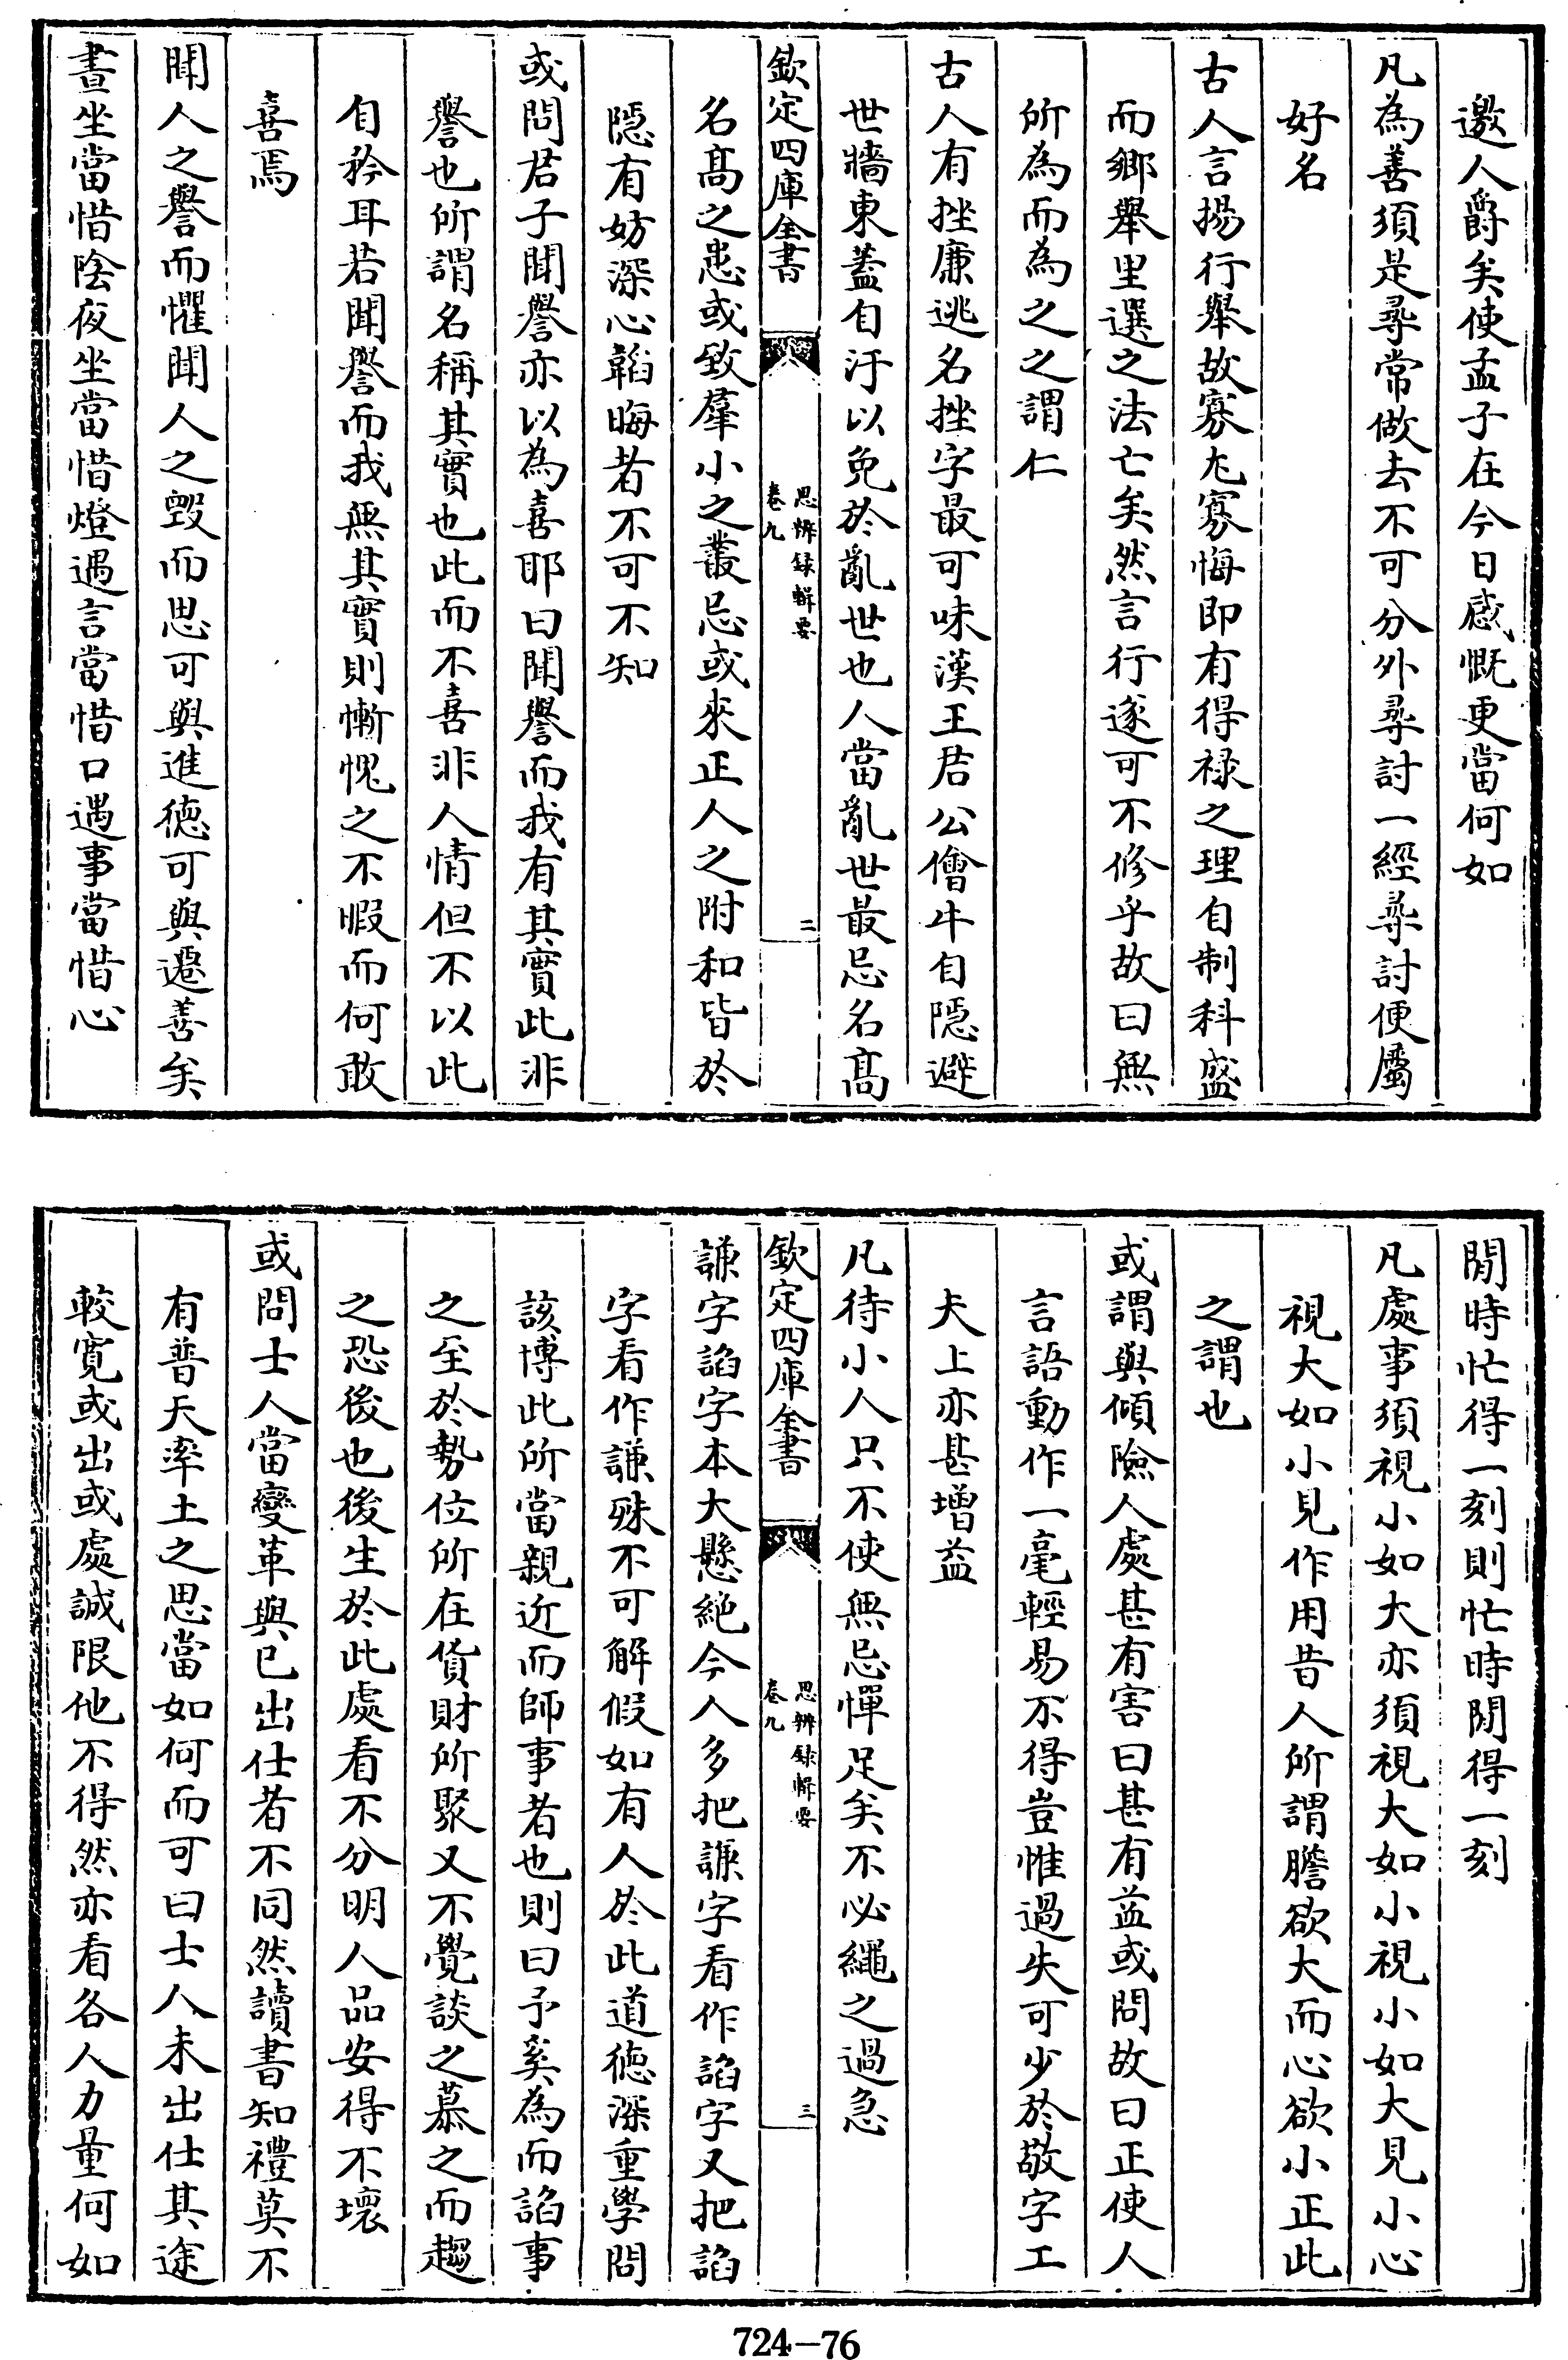 邀人爵矣使孟子在今日感慨更當何如
凡為善須是尋常做去不可分外尋討一經尋討便屬
好名
古人言揚行舉故寡尤寡悔即有得禄之理自制科盛
而鄉舉里選之法亡矣然言行遂可不修乎故曰無
所為而為之之謂仁
古人有挫廉逃名挫字最可味漢王君公儈牛自隱避
世牆東蓋自汙以免於亂世也人當亂世最忌名髙
欽定四庫全書
思辨録輯要
卷九
二
名髙之患或致羣小之叢忌或來正人之附和皆於
隱有妨深心韜晦者不可不知
或問君子聞譽亦以為喜耶曰聞譽而我有其實此非
譽也所謂名稱其實也此而不喜非人情但不以此
自矜耳若聞譽而我無其實則慚愧之不暇而何敢
喜焉
聞人之譽而懼聞人之毀而思可與進徳可與遷善矣
晝坐當惜陰夜坐當惜燈遇言當惜口遇事當惜心
閒時忙得一刻則忙時閒得一刻
凡處事須視小如大亦須視大如小視小如大見小心
視大如小見作用昔人所謂膽欲大而心欲小正此
之謂也
或謂與傾險人處甚有害曰甚有益或問故曰正使人
言語動作一毫輕易不得豈惟過失可少於敬字工
夫上亦甚增益
凡待小人只不使無忌憚足矣不必繩之過急
欽定四庫全書
思辨録輯要
卷九
三
謙字諂字本大懸絶今人多把謙字看作諂字又把諂
字看作謙殊不可解假如有人於此道徳深重學問
該博此所當親近而師事者也則曰予奚為而諂事
之至於勢位所在貨財所聚又不覺談之慕之而趨
之恐後也後生於此處看不分明人品安得不壞
或問士人當變革與已出仕者不同然讀書知禮莫不
有普天率土之思當如何而可曰士人未出仕其途
較寛或出或處誠限他不得然亦看各人力量何如
724-76